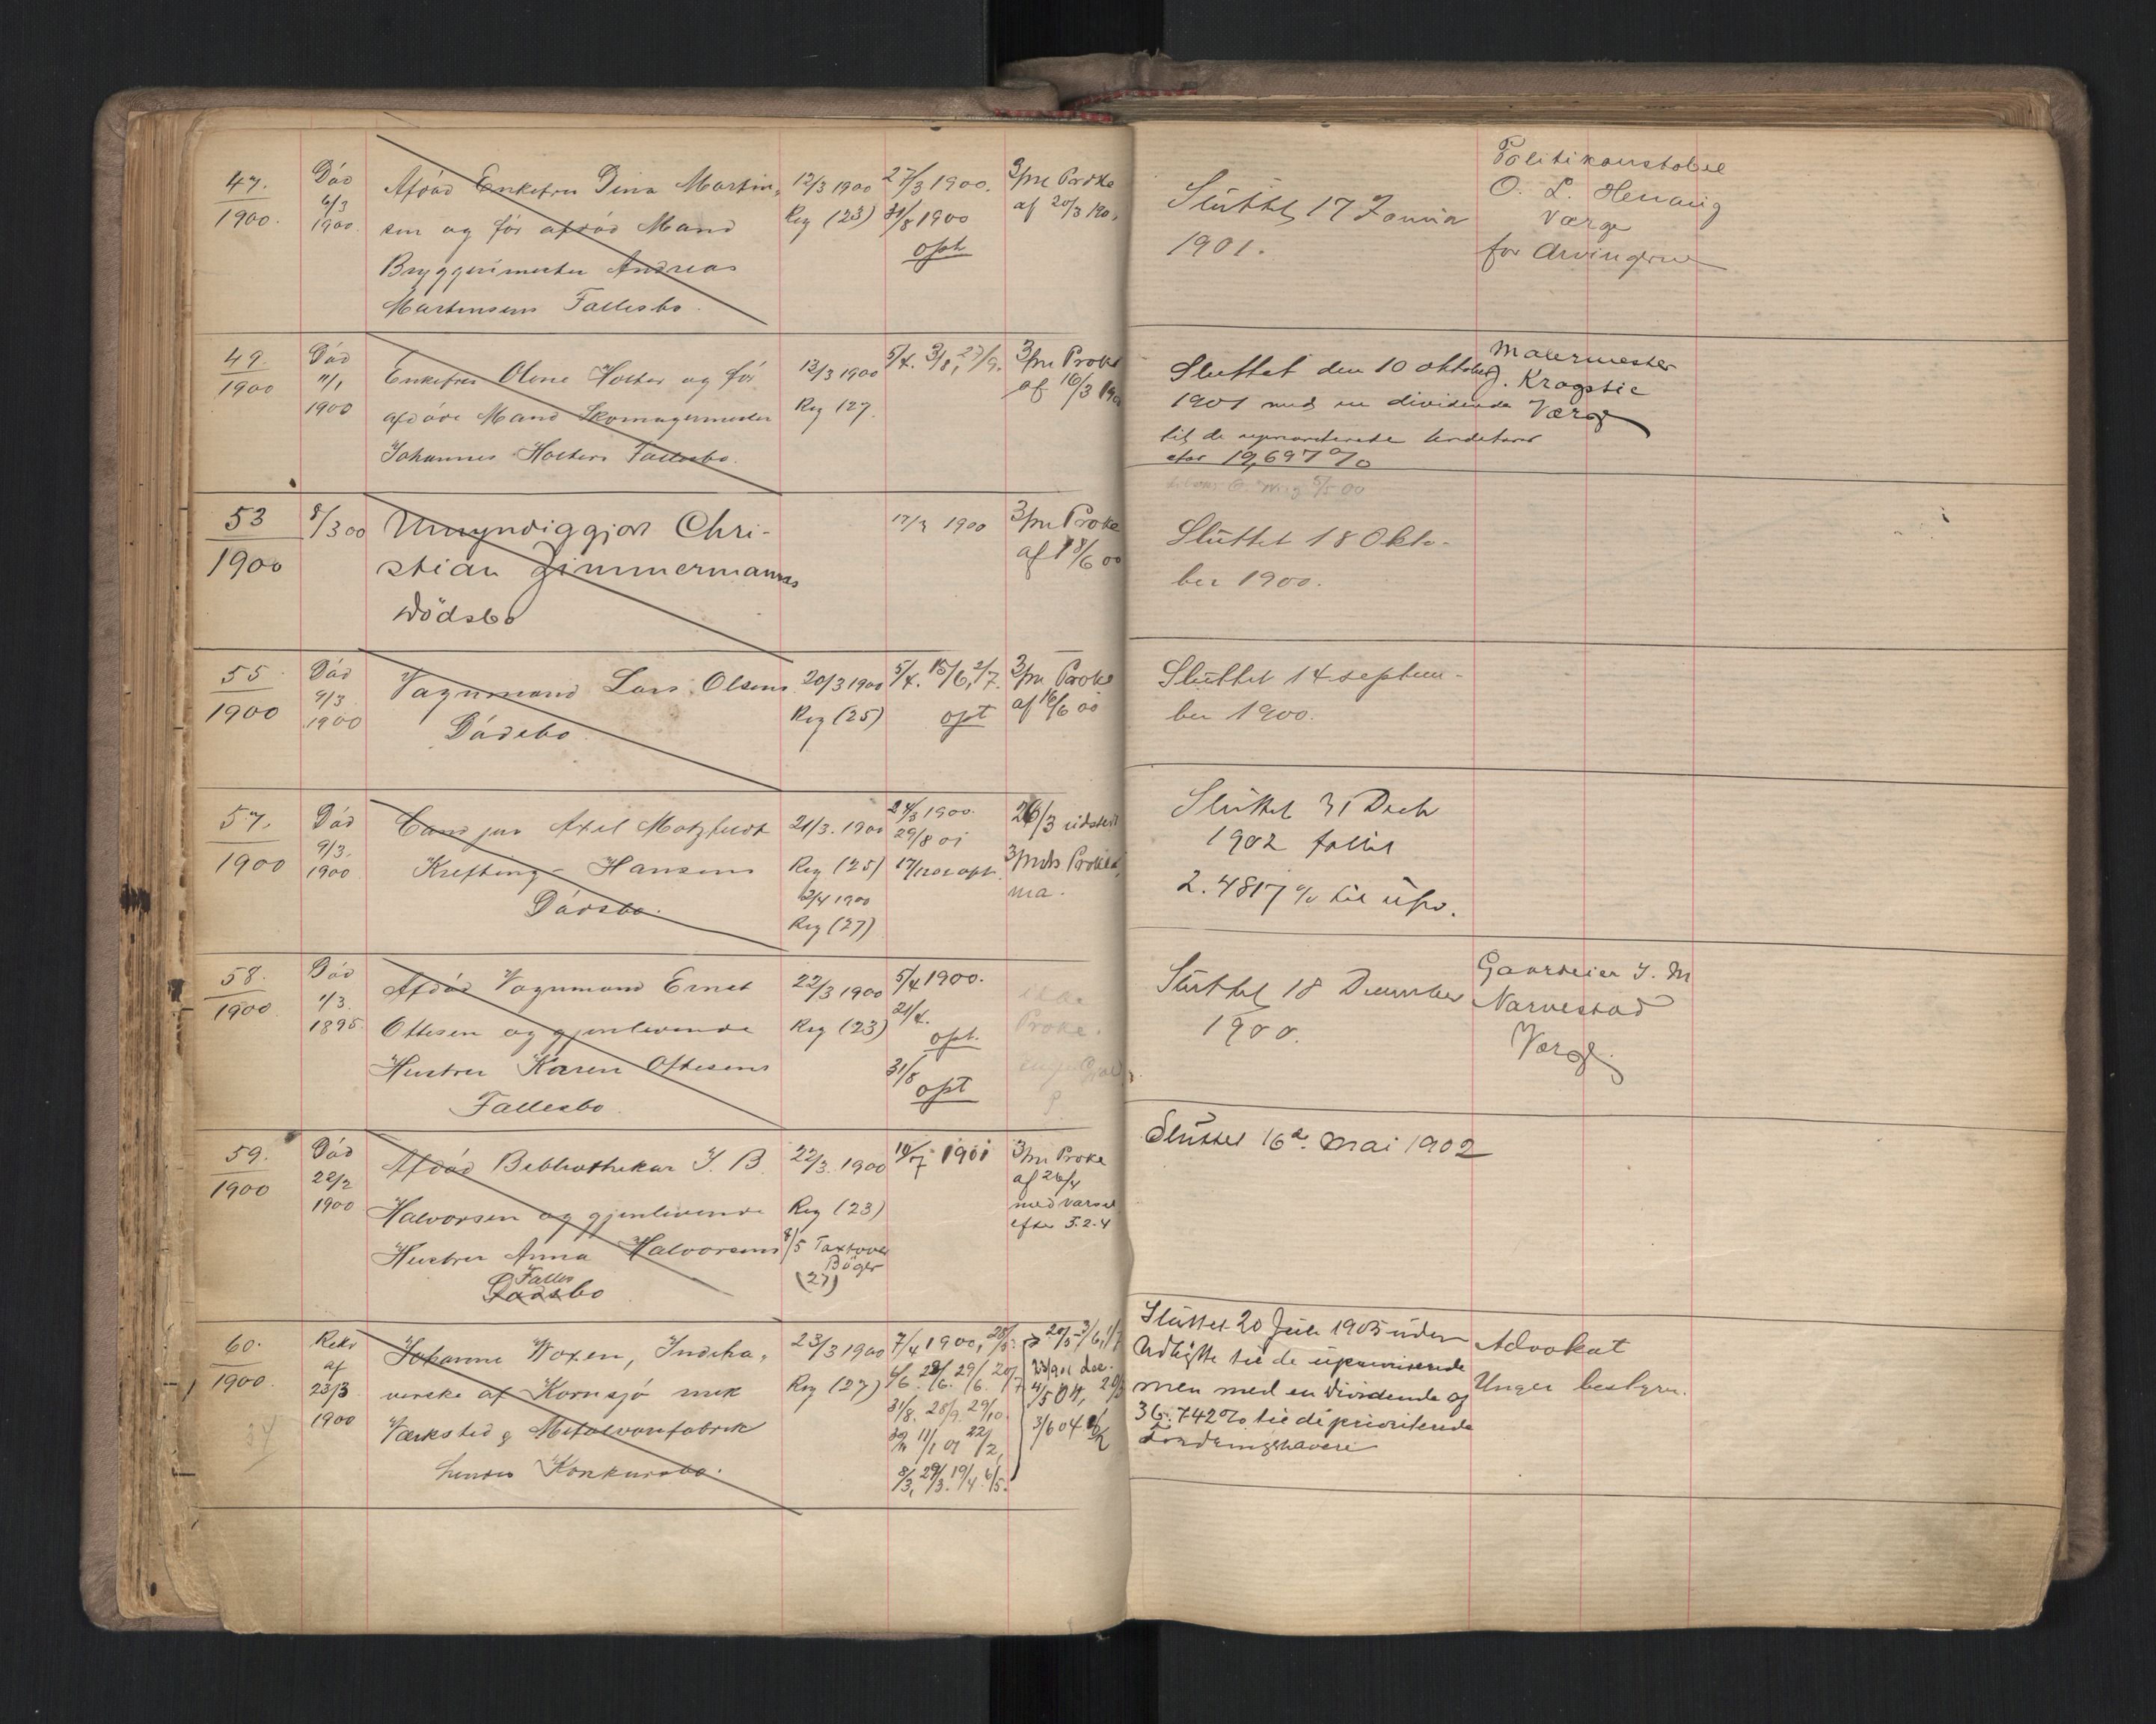 47.
1900.
Død
6/3
1900.
Afdød Enkefru Dina Martin-
sen og før afdød Mand
Bryggerimester Andreas
Martinsens Fællesbo.
12/3 1900
Reg (23)
27/3 1900.
31/8 1900
opt
3/m Prokl
af 20/3 1900.
Sluttet 17 Januar
1901.
Politikonstabel
O. L. Henang
Værge
for Arvingerne
49
1900
Død
11/1
1900
Enkefru Oline Holter og før
afdøde Mand Skomagermester
Johannes Holters Fællesbo.
12/3 1900
Reg (27.
5/4. 3/8, 27/9.
3/m Prokl
af 16/3 1900
Sluttet den 10 oktober
1901 med en dividende
til de uprioriterede
stor 19,697 %
Malermester
J. Krogstie
Værge
53
1900
8/3 00
Umyndiggjort Chri-
stian Zimmermanns
Dödsbo
17/3 1900
3/m Prokl
af 18/6 00
Sluttet 18 Okto-
ber 1900.
55
1900
Død
9/3
1900
Vognmand Lars Olsens
Dødsbo
20/3 1900
Reg (25)
5/4. 15/6, 2/7.
opt
3/m Prokl
af 16/6 00
Sluttet 14 septem-
ber 1900.
57.
1900
Død
9/3.
1900
Cand jur Axel Motzfeldt
Krefting-Hansens
Dødsbo.
21/3. 1900
Reg (25)
2/4 1900
Reg (27)
24/3 1900.
29/8 01
opt.
26/3 udstedt
3/mds Prokla,
ma.
Sluttet 31 Decb
1902 fallit
2.4817 % til upr.
58.
1900
Død
1/3.
1895
Afdød Vognmand Ernst
Ottesen og gjenlevende
Hustru Karen Ottesens
Fællesbo
22/3 1900
Reg (23)
5/4 1900.
21/4.
opt.
31/8
opt
ikke
Prokl.
Sluttet 18 December
1900.
Gaardeier J. M
Narvestad
Værge.
59.
1900
Død
22/2
1900
Afdød Bibliothekar J. B.
Halvorsen og gjenlevende
Hustru Anna Halvorsens
Fælles
Dødsbo
22/3. 1900
Reg (23)
8/5 Taxt over
Böger
(27)
14/7 1901
3/m Prokl
af 26/4
med varsel
efter 5.2.4
Sluttet 16de Mai 1902
60.
1900.
Rekv
af
23/3
1900
Johanne Woxen, Indeha-
verske af Kornsjø mek
Værksted & Metalvarefabrik
hendes Konkursbo.
23/3 1900
Reg (27)
7/4 1900, 28/5.
6/6. 28/6. 29/6. 20/7
31/8. 28/9. 29/10.
11/1 01 22/2,
8/3, 29/3. 19/4. 6/5.
20/5 3/6, 1/7
3/6 04
Sluttet 20 Juli 1905 uden
Udbytte til de upriviterede
men med en Dividende af
36.742% til de prioriterede
Fordringshavere
Advokat
Unger bestyrer.